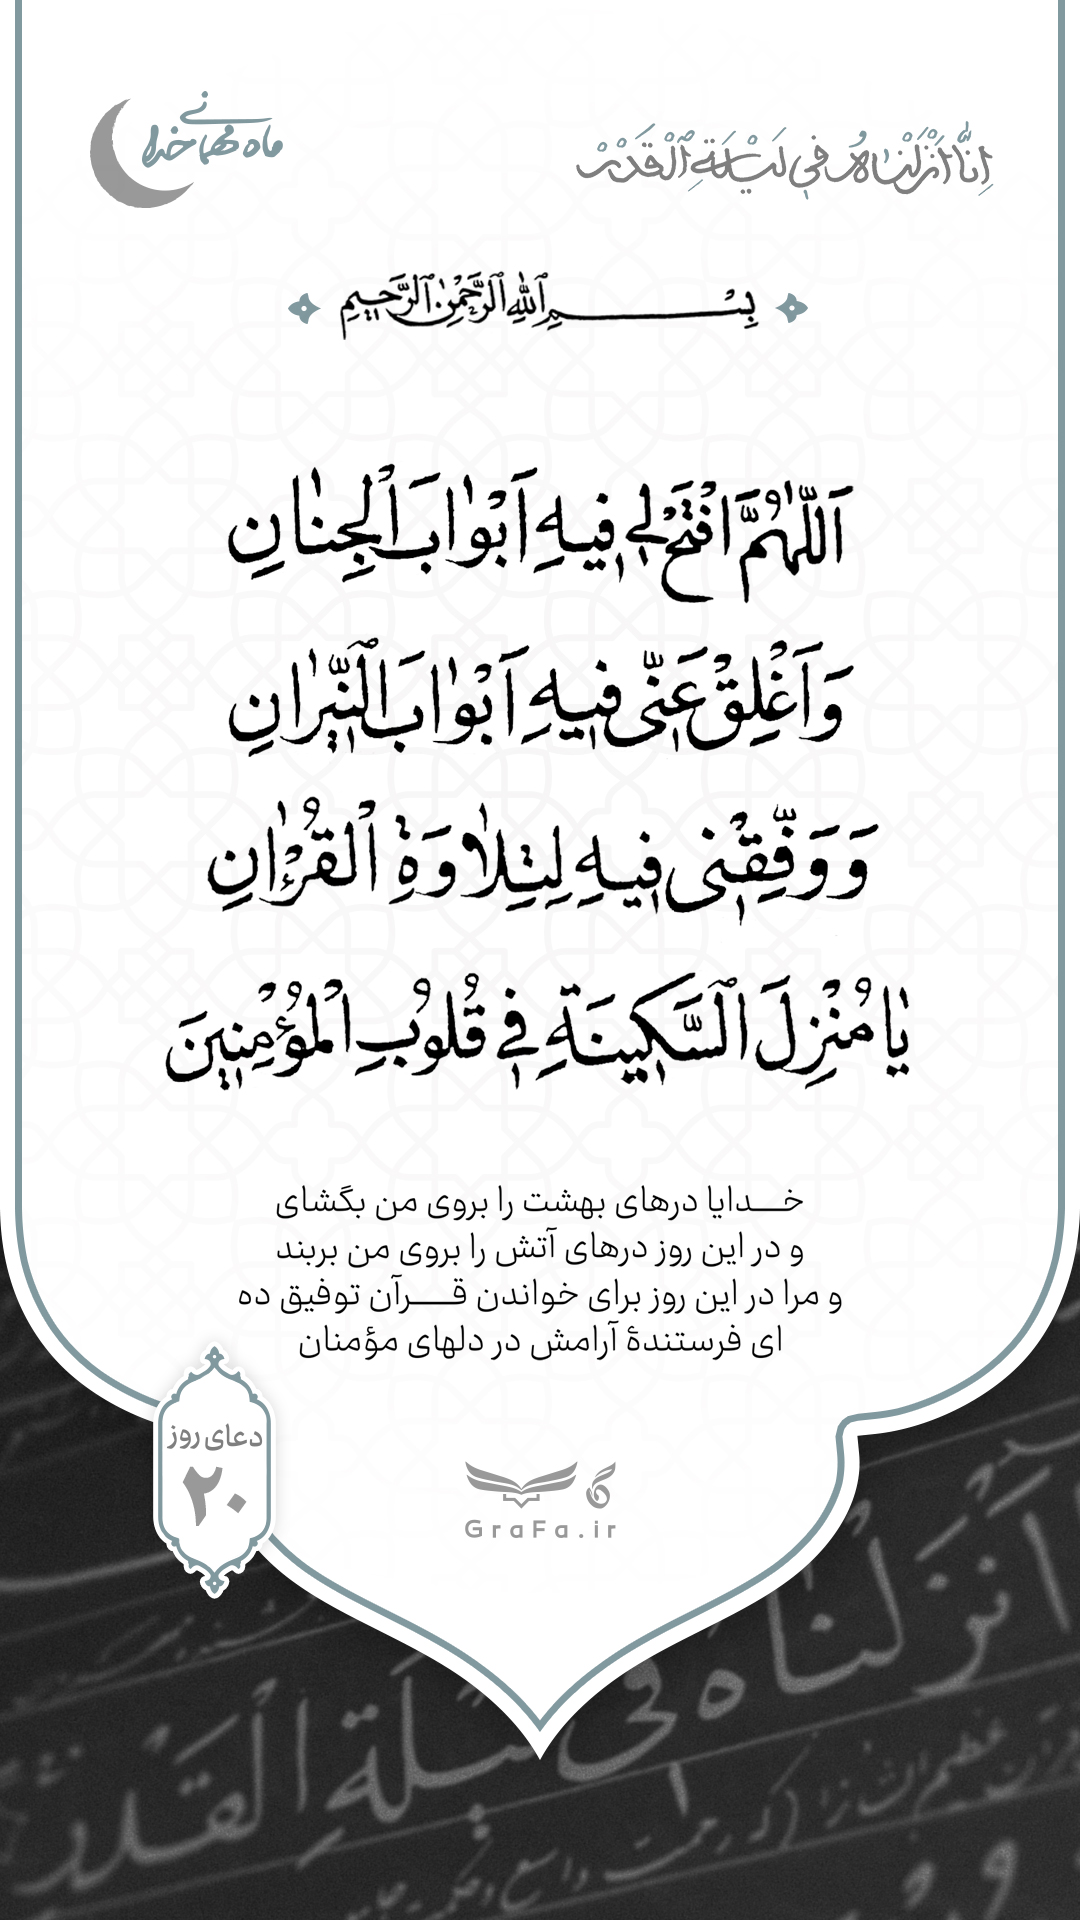 ماه مهمانی خدا
اِنَّا اَنْزَلْنٰاهُ فی لَیْلَةِ الْقَدْرْ
بِسْمِ ٱللّٰهِ ٱلرَّحْمٰنِ ٱلرَّحیمِ
اَللّٰهُمَّ افْتَحْ لی فیهِ اَبْوٰابَ الْجِنٰانِ
وَ اَغْلِقْ عَنّی فیهِ اَبْوٰابَ ٱلنّیرٰانِ
وَ وَفِّقْنی فیهِ لِتِلٰاوَةِ ٱلْقُرْءٰانِ
یٰا مُنْزِلَ ٱلسَّکینَةِ فی قُلُوبِ الْمُؤْمِنینَ
خـــدایا درهای بهشت را بروی من بگشای
و در این روز درهای آتش را بروی من بربند
و مرا در این روز برای خواندن قـــرآن توفیق ده
ای فرستندهٔ آرامش در دلهای مؤمنان
دعای روز
۲۰
GraFa.ir
اَنْزَلْنٰاهُ فی لَیْلَةِ الْقَدْر